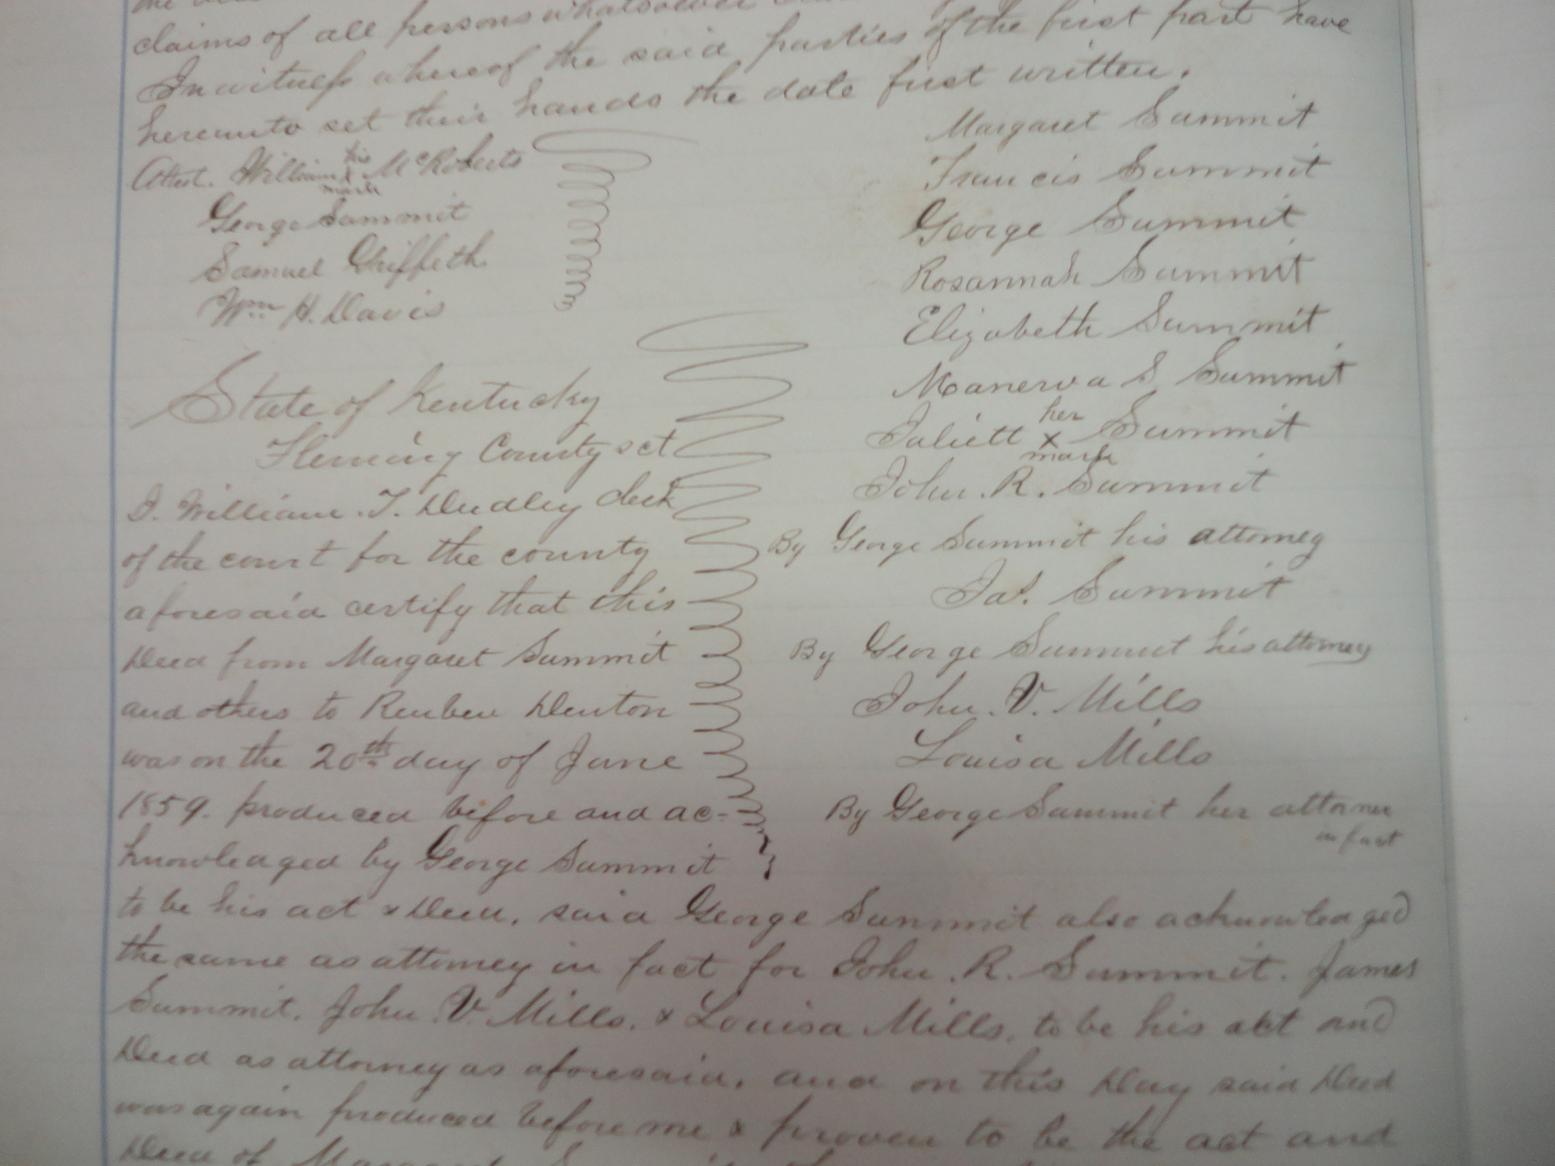 claims of all persons whatsoever
In witness whereof the said parties of the first part have
hereunto set their hands the date first written.
Attest. William his x mark McRoberts
George Summit
Samuel Griffeth
Wm H. Davis
Margaret Summit
Francis Summit
George Summit
Rosannah Summit
Elizabeth Summit
Manerva S Summit
Juliett her x mark Summit
John. R. Summit
By George Summit his attorney
Jas. Summit
By George Summit his attorney
John. V. Mills
Louisa Mills
By George Summit her attorney
in fact
State of Kentucky
Fleming County sct
I. William. T. Dudley clerk
of the court for the county
aforesaid certify that this
Deed from Margaret Summit
and others to Reuben Denton
was on the 20th day of June
1859. produced before and ac-
knowledged by George Summit
to be his act & Deed, said George Summit also acknowledged
the same as attorney in fact for John. R. Summit. James
Summit. John. V. Mills. & Louisa Mills, to be his act and
Deed as attorney as aforesaid, and on this Day said Deed
was again produced before me & proven to be the act and
Deed of Margaret